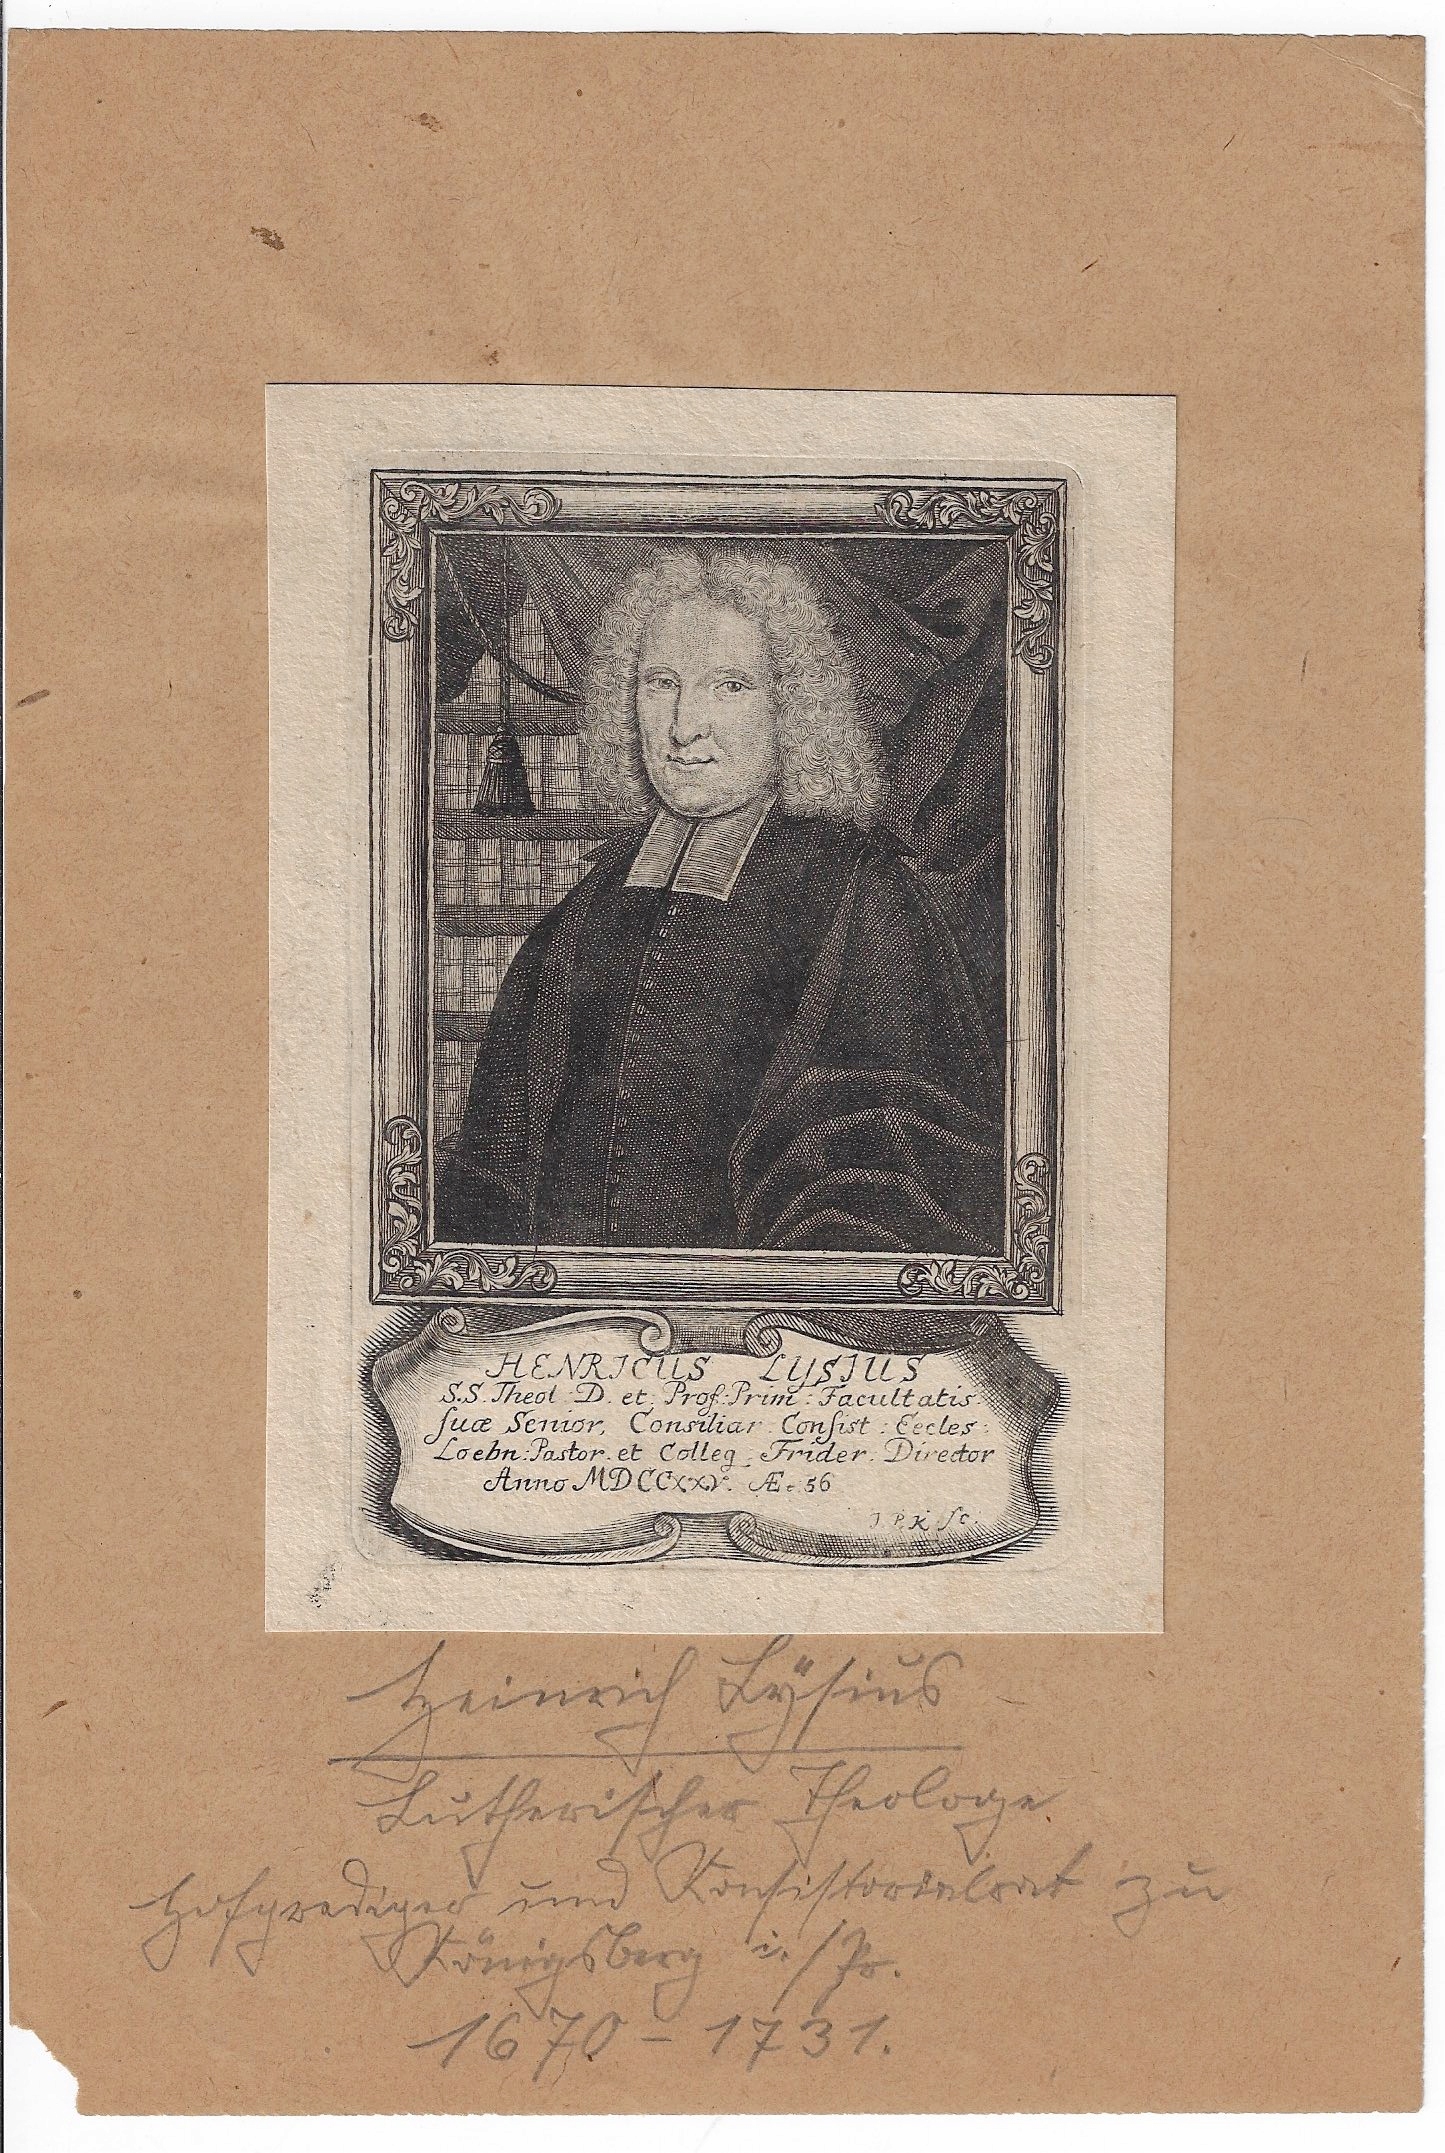 HENRICUS LYSIUS
S.S. Theol: D. et. Prof: Prim: Facultatis
suæ Senior, Consiliar. Consist: Eccles:
Loebn: Pastor. et Colleg. Frider. Director
Anno MDCCXXV. Æ. 56
J. P. K. sc.
Heinrich Lÿsius
Lutherischer Theologe
Hofprediger und Konsistorialrat zu
Königsberg i./Pr.
1670 - 1731.